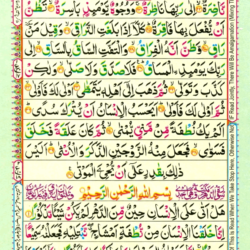 نَّاضِرَةٌ اِلٰى رَبِّهَا نَاظِرَةٌ وَوُجُوْهٌ يَّوْمَئِذٍۭ بَاسِرَةٌ تَظُنُّ
اَنْ يُّفْعَلَ بِهَا فَاقِرَةٌ كَلَّآ اِذَا بَلَغَتِ التَّرَاقِيَ وَقِيْلَ مَنْ
رَاقٍ وَّظَنَّ اَنَّهُ الْفِرَاقُ وَالْتَفَّتِ السَّاقُ بِالسَّاقِ اِلٰى
رَبِّكَ يَوْمَئِذِ ۨالْمَسَاقُ فَلَا صَدَّقَ وَلَا صَلّٰى وَلٰكِنْ
كَذَّبَ وَتَوَلّٰى ثُمَّ ذَهَبَ اِلٰٓى اَهْلِهٖ يَتَمَطّٰى
اَوْلٰى لَكَ فَاَوْلٰى اَيَحْسَبُ الْاِنْسَانُ اَنْ يُّتْرَكَ سُدًى
اَلَمْ يَكُ نُطْفَةً مِّنْ مَّنِيٍّ يُّمْنٰى ثُمَّ كَانَ عَلَقَةً فَخَلَقَ
فَسَوّٰى فَجَعَلَ مِنْهُ الزَّوْجَيْنِ الذَّكَرَ وَالْاُنْثٰى اَلَيْسَ
ذٰلِكَ بِقٰدِرٍ عَلٰٓى اَنْ يُّحْيِۦَ الْمَوْتٰى
بِسْمِ اللّٰهِ الرَّحْمٰنِ الرَّحِيْمِ
هَلْ اَتٰى عَلَى الْاِنْسَانِ حِيْنٌ مِّنَ الدَّهْرِ لَمْ يَكُنْ شَيْئًا مَّذْكُوْرًا
اِنَّا خَلَقْنَا الْاِنْسَانَ مِنْ نُّطْفَةٍ اَمْشَاجٍ